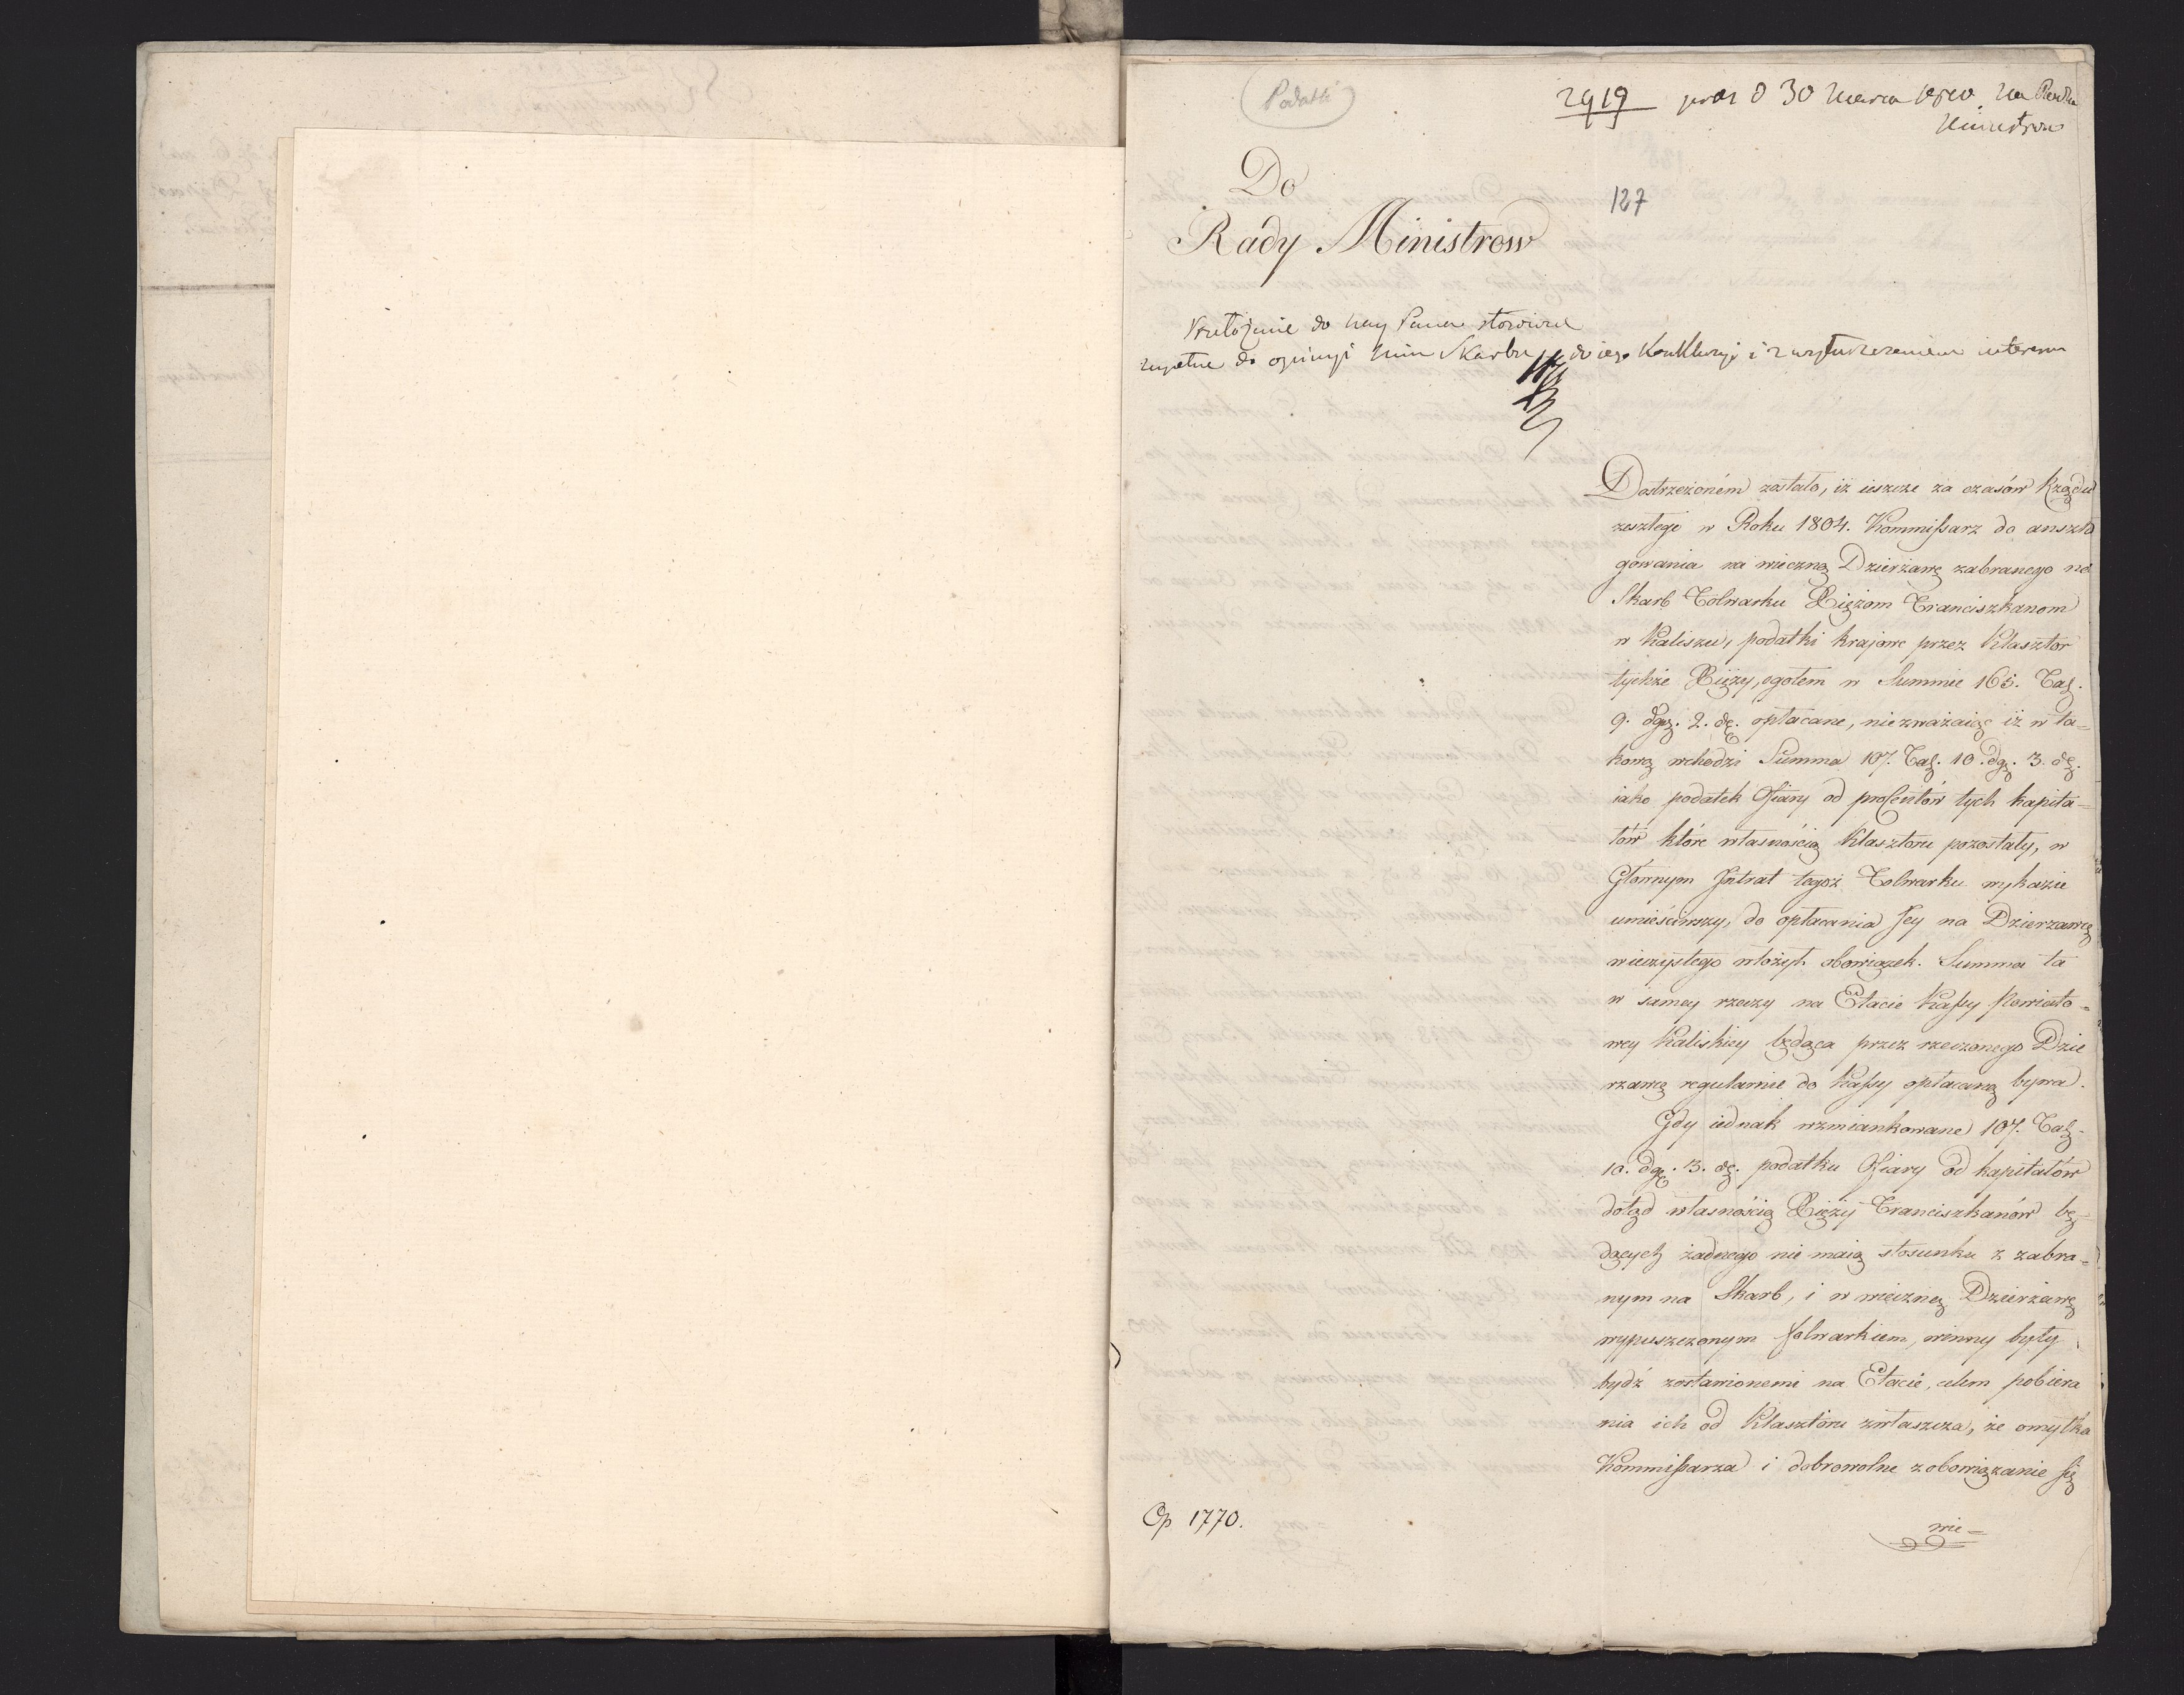 Podatki
2919 prae d 30 Marca 1810. Na Radu
Ministrów
127
Do
Rady Ministrow
Przełożenie do Nay Pana stosowne
zupełnie do opinyi Min Skarbu, do iego Konkluzyi i z wytłuszczeniem interesu
Dostrzeżoném zostało, iż ieszcze za czasów Rządu
zeszłego w Roku 1804. Kommissarz do anszla
gowania na wieczną Dzierżawę zabranego na
Skarb Folwarku Xiężom Franciszkanom
w Kaliszu, podatki krajowe przez Klasztor
tychże Xięży, ogołem w Summie 165. Tal.
9. dgr. 2. d. opłacane, nie zważaiąc iż w ta=
kową wchodzi Summa 107. Tal. 10. dgr. 3. d.
iako podatek Ofiary od procentów tych kapita=
łów które własnością Klasztoru pozostały, w
Głownym Intrat tegoż Folwarku wykazie
umieściwszy, do opłacania Jey na Dzierzawcę
wieczystego włożył obowiązek. Summa ta
w samey rzeczy na Etacie Kassy Powiato=
wey Kaliskiey będąca przez rzeczonego Dzie
rzawcę regularnie do Kassy opłacaną bywa.
Gdy iednak wzmiankowane 107. Tal.
10. dgr. 3. d. podatku Ofiary od kapitałów
dotąd własnością Xięży Franciszkanów bę=
dących żadnego nie maią stosunku z zabra=
nym na Skarb, i w wieczną Dzierżawę
wypuszczonym folwarkiem, winny były
bydź zostawionemi na Etacie, celem pobiera
nia ich od Klasztoru zwłaszcza, że omyłka
Kommissarza i dobrowolne zobowiązanie się
Op 1770.
wie=